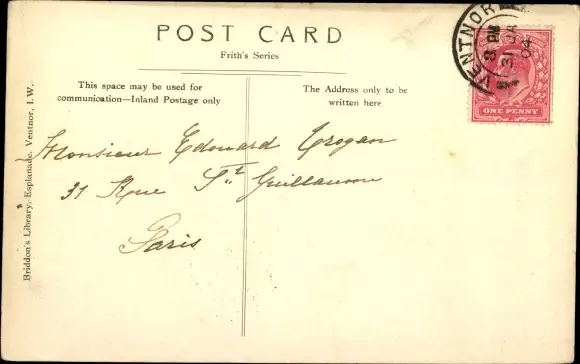 POST CARD
Frith's Series
This space may be used for
communication—Inland Postage only
The Address only to be
written here
VENTNOR
8 PM
31 JA
04
ONE PENNY
Monsieur Edouard Crogan
31 Rue St Guillaume
Paris
Briddon's Library, Esplanade, Ventnor, I.W.